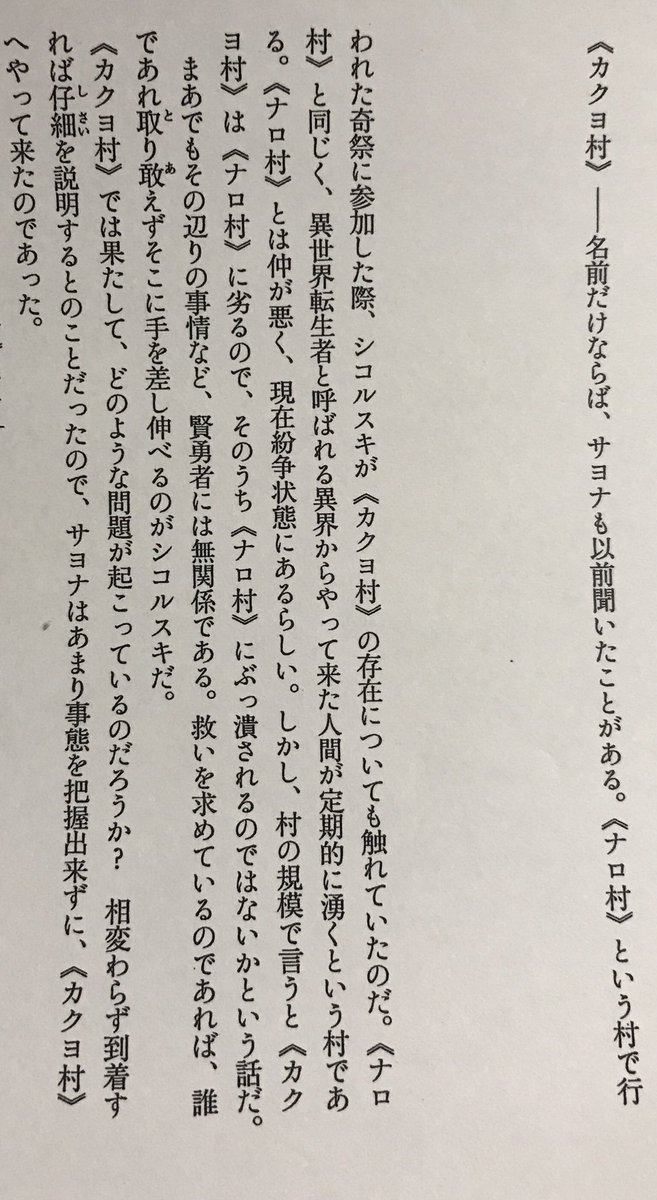 《カクヨ村》――名前だけならば、サヨナも以前聞いたことがある。《ナロ村》という村で行
われた奇祭に参加した際、シコルスキが《カクヨ村》の存在についても触れていたのだ。《ナロ
村》と同じく、異世界転生者と呼ばれる異界からやって来た人間が定期的に湧くという村であ
る。《ナロ村》とは仲が悪く、現在紛争状態にあるらしい。しかし、村の規模で言うと《カク
ヨ村》は《ナロ村》に劣るので、そのうち《ナロ村》にぶっ潰されるのではないかという話だ。
まあでもその辺りの事情など、賢勇者には無関係である。救いを求めているのであれば、誰
であれ取り敢えずそこに手を差し伸べるのがシコルスキだ。
《カクヨ村》では果たして、どのような問題が起こっているのだろうか？　相変わらず到着す
れば仔細を説明するとのことだったので、サヨナはあまり事態を把握出来ずに、《カクヨ村》
へやって来たのであった。